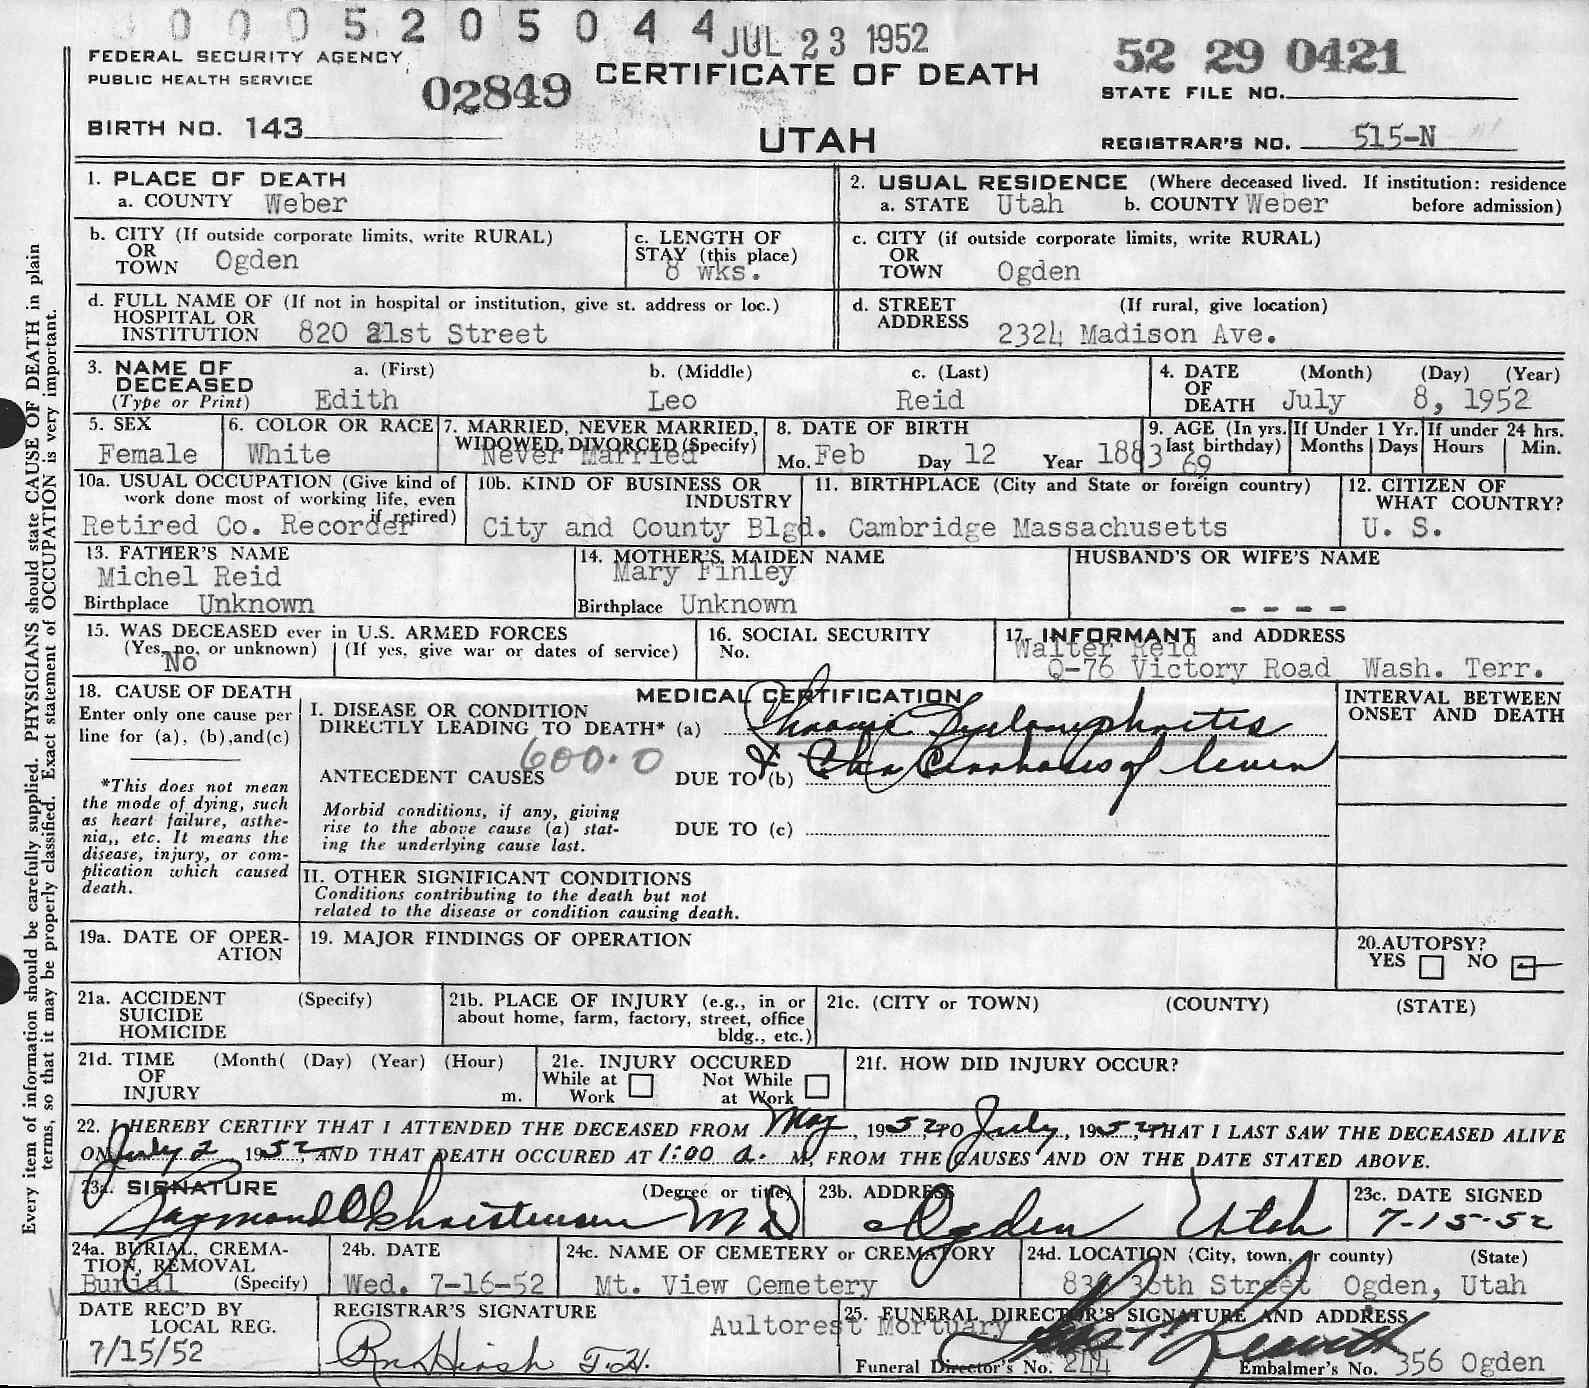 0 0 0 5 2 0 5 0 4 4 JUL 23 1952
FEDERAL SECURITY AGENCY
PUBLIC HEALTH SERVICE
02849
CERTIFICATE OF DEATH
52 29 0421
STATE FILE NO.
BIRTH NO. 143
UTAH
REGISTRAR'S NO. 515-N
1. PLACE OF DEATH
a. COUNTY Weber
2. USUAL RESIDENCE (Where deceased lived. If institution: residence
a. STATE Utah b. COUNTY Weber before admission)
b. CITY (If outside corporate limits, write RURAL)
OR
TOWN Ogden
c. LENGTH OF
STAY (this place)
8 wks.
c. CITY (if outside corporate limits, write RURAL)
OR
TOWN Ogden
d. FULL NAME OF (If not in hospital or institution, give st. address or loc.)
HOSPITAL OR
INSTITUTION 820 21st Street
d. STREET (If rural, give location)
ADDRESS 2324 Madison Ave.
3. NAME OF a. (First) b. (Middle) c. (Last)
DECEASED
(Type or Print) Edith Leo Reid
4. DATE (Month) (Day) (Year)
OF
DEATH July 8, 1952
5. SEX
Female
6. COLOR OR RACE
White
7. MARRIED, NEVER MARRIED,
WIDOWED, DIVORCED (Specify)
Never Married
8. DATE OF BIRTH
Mo. Feb Day 12 Year 1883
9. AGE (In yrs. last birthday)
69
If Under 1 Yr.
Months Days
If under 24 hrs.
Hours Min.
10a. USUAL OCCUPATION (Give kind of
work done most of working life, even
if retired)
Retired Co. Recorder
10b. KIND OF BUSINESS OR
INDUSTRY
City and County Blgd.
11. BIRTHPLACE (City and State or foreign country)
Cambridge Massachusetts
12. CITIZEN OF
WHAT COUNTRY?
U. S.
13. FATHER'S NAME
Michel Reid
Birthplace Unknown
14. MOTHER'S MAIDEN NAME
Mary Finley
Birthplace Unknown
HUSBAND'S OR WIFE'S NAME
- - - -
15. WAS DECEASED ever in U.S. ARMED FORCES
(Yes, no, or unknown) (If yes, give war or dates of service)
No
16. SOCIAL SECURITY
No.
17. INFORMANT and ADDRESS
Walter Reid
Q-76 Victory Road Wash. Terr.
18. CAUSE OF DEATH
Enter only one cause per
line for (a), (b), and (c)
*This does not mean
the mode of dying, such
as heart failure, asthe-
nia,, etc. It means the
disease, injury, or com-
plication which caused
death.
MEDICAL CERTIFICATION
I. DISEASE OR CONDITION
DIRECTLY LEADING TO DEATH* (a)
600.0
ANTECEDENT CAUSES DUE TO (b)
Morbid conditions, if any, giving
rise to the above cause (a) stat-
ing the underlying cause last.
DUE TO (c)
INTERVAL BETWEEN
ONSET AND DEATH
II. OTHER SIGNIFICANT CONDITIONS
Conditions contributing to the death but not
related to the disease or condition causing death.
19a. DATE OF OPER-
ATION
19. MAJOR FINDINGS OF OPERATION
20. AUTOPSY?
YES NO
21a. ACCIDENT (Specify)
SUICIDE
HOMICIDE
21b. PLACE OF INJURY (e.g., in or
about home, farm, factory, street, office
bldg., etc.)
21c. (CITY or TOWN) (COUNTY) (STATE)
21d. TIME (Month( (Day) (Year) (Hour)
OF
INJURY m.
21e. INJURY OCCURED
While at Not While
Work at Work
21f. HOW DID INJURY OCCUR?
22. I HEREBY CERTIFY THAT I ATTENDED THE DECEASED FROM May, 1952, TO July, 1952, THAT I LAST SAW THE DECEASED ALIVE
ON July 2 1952, AND THAT DEATH OCCURED AT 1:00 a. M, FROM THE CAUSES AND ON THE DATE STATED ABOVE.
23a. SIGNATURE (Degree or title)
Raymond Christensen M D
23b. ADDRESS
Ogden Utah
23c. DATE SIGNED
7-15-52
24a. BURIAL, CREMA-
TION, REMOVAL
Burial (Specify)
24b. DATE
Wed. 7-16-52
24c. NAME OF CEMETERY or CREMATORY
Mt. View Cemetery
24d. LOCATION (City, town, or county) (State)
36th Street Ogden, Utah
DATE REC'D BY
LOCAL REG.
7/15/52
REGISTRAR'S SIGNATURE
25. FUNERAL DIRECTOR'S SIGNATURE AND ADDRESS
Aultorest Mortuary
Funeral Director's No. 244 Embalmer's No. 356 Ogden
Every item of information should be carefully supplied. PHYSICIANS should state CAUSE OF DEATH in plain
terms, so that it may be properly classified. Exact statement of OCCUPATION is very important.